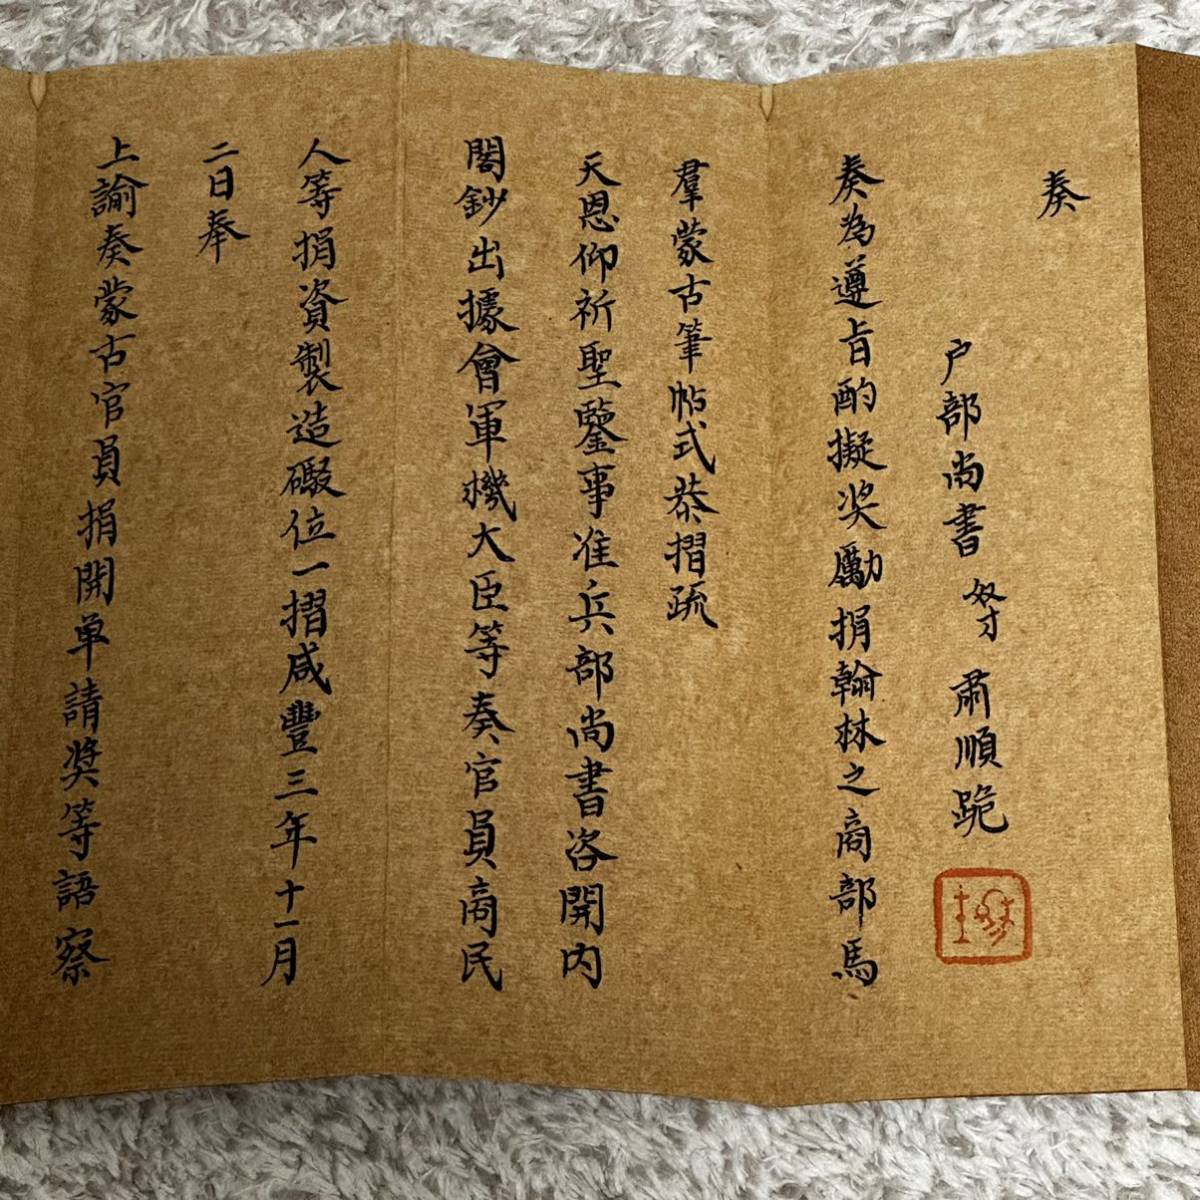 奏
户部尚書 奴才 肅順跪
奏為遵旨酌擬奖勵捐翰林之商部馬
羣蒙古筆帖式恭摺疏
天恩仰祈聖鑒事准兵部尚書咨開内
閣鈔出據會軍機大臣等奏官員商民
人等捐資製造礮位一摺咸豐三年十一月
二日奉
上諭奏蒙古官員捐開单請奖等語察